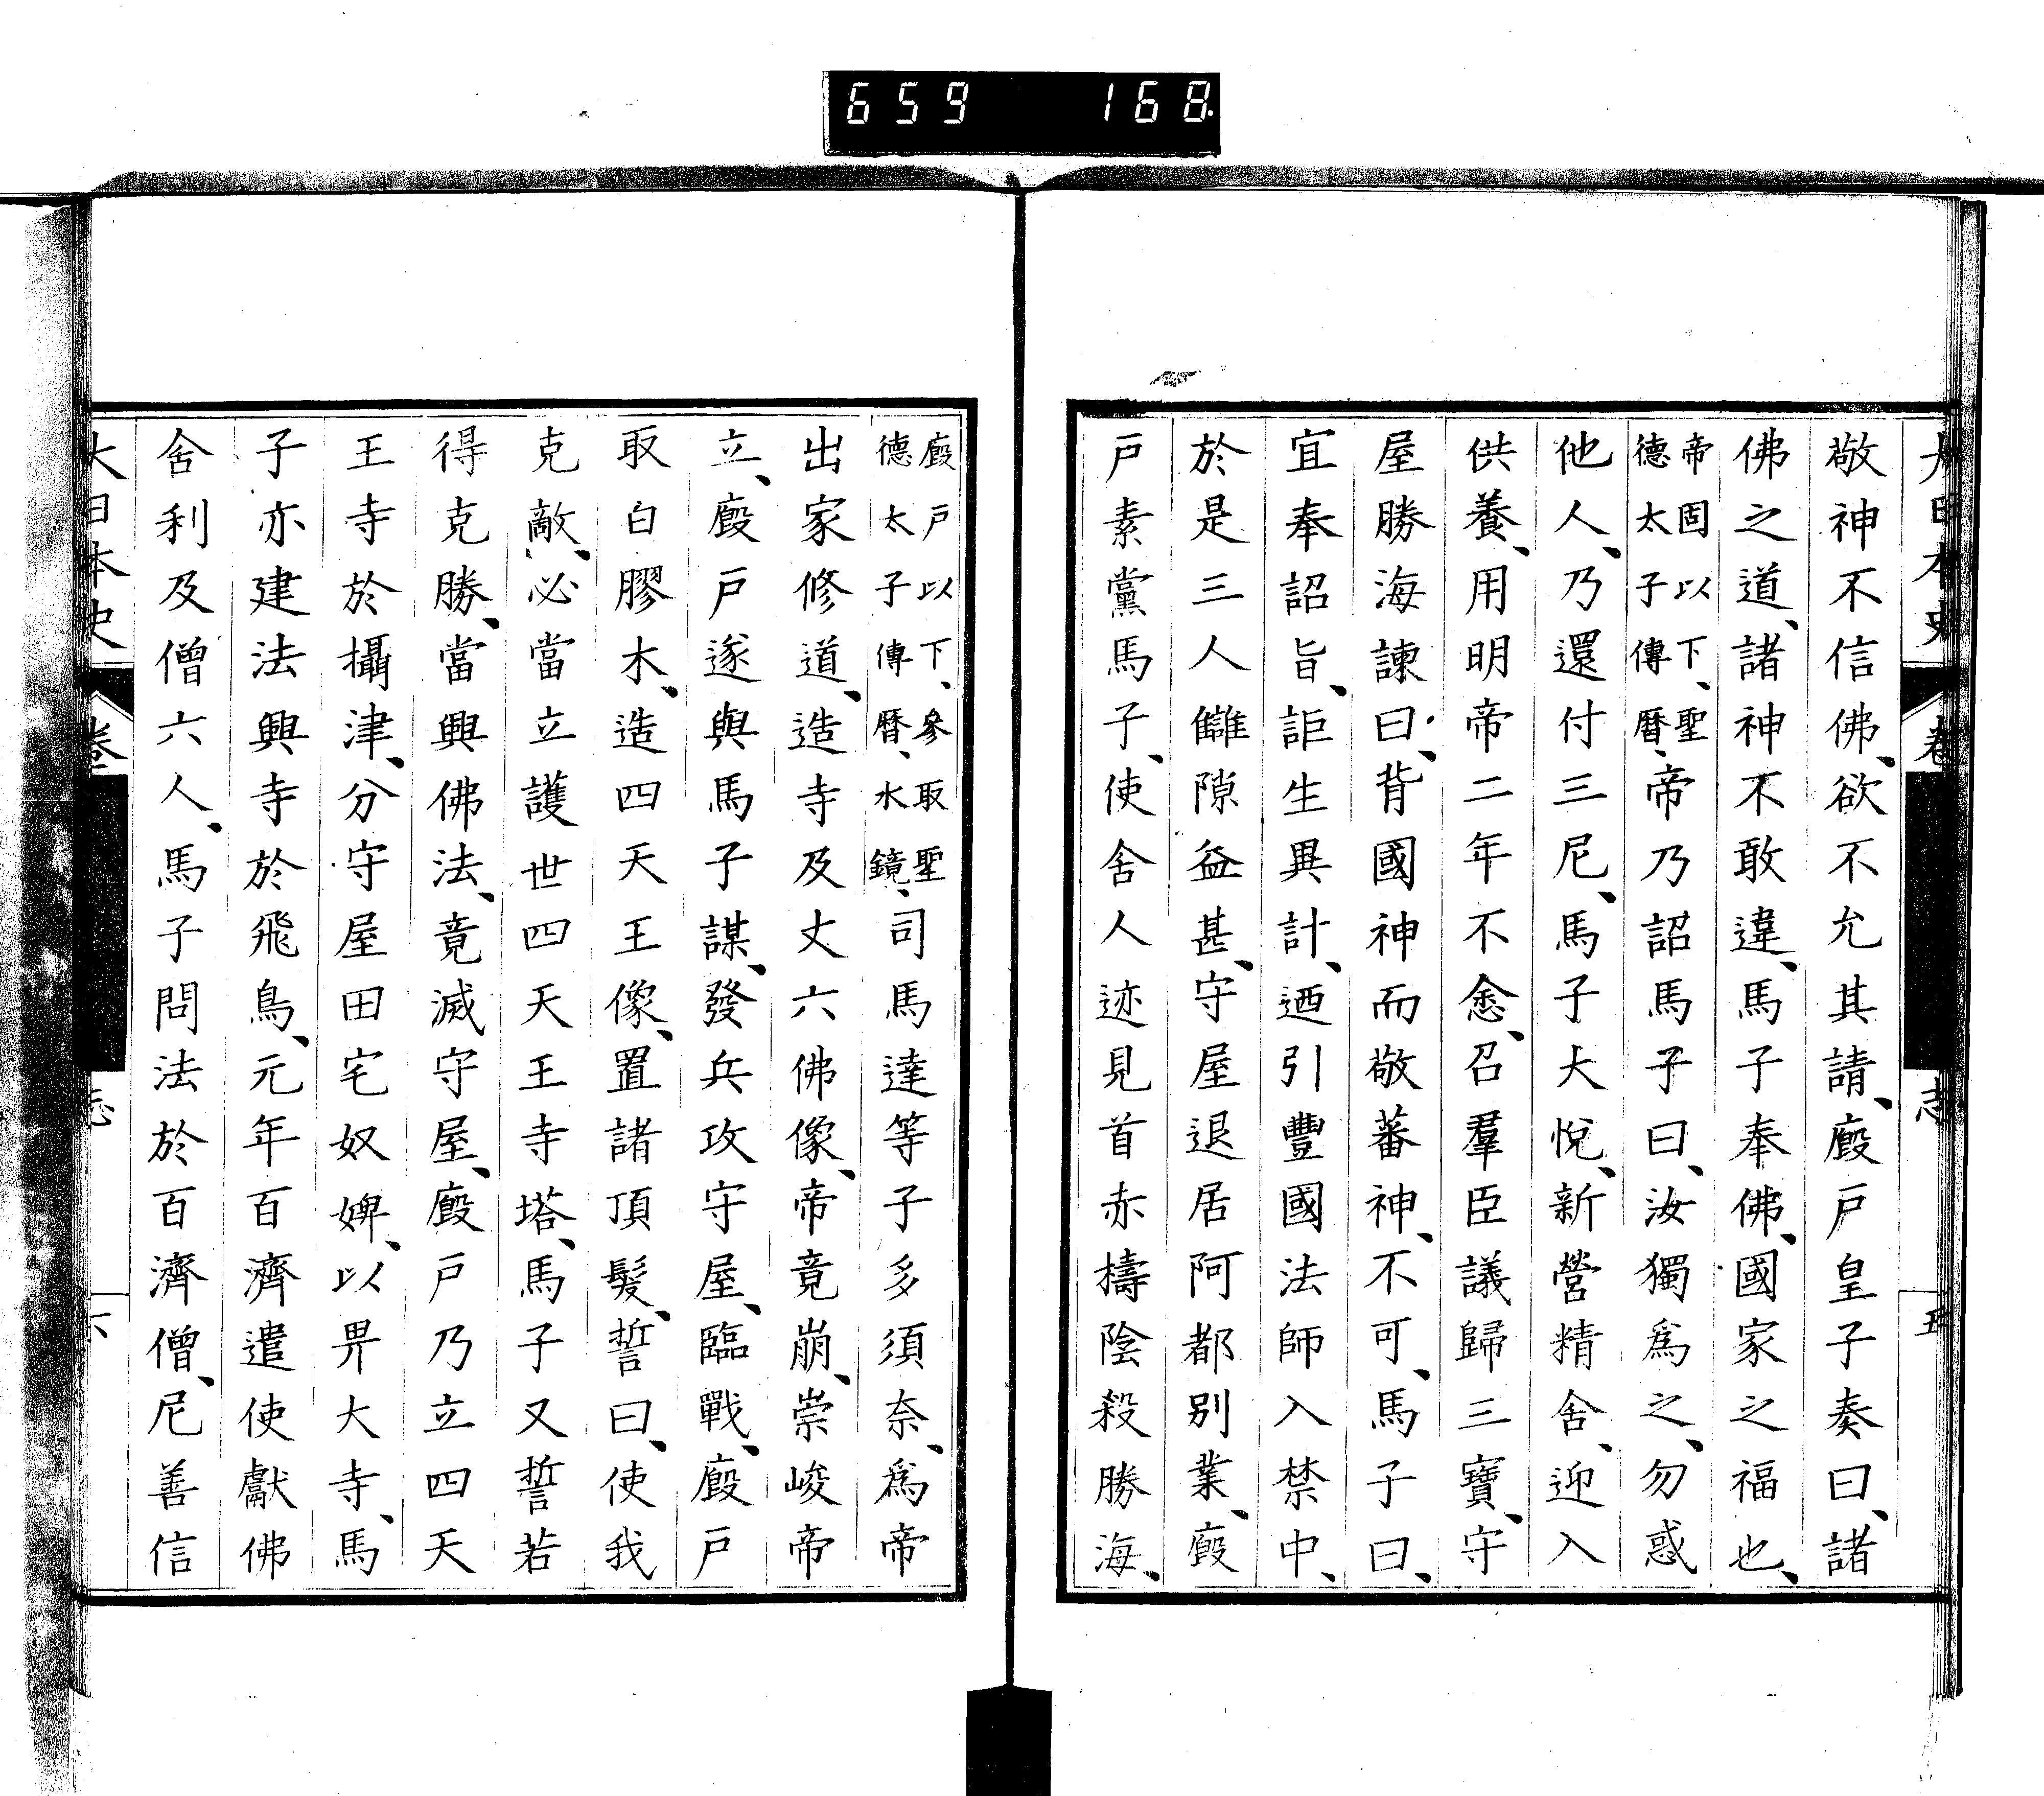 659 168
大日本史 卷 志 五
敬神不信佛、欲不允其請、廄戸皇子奏曰、諸
佛之道、諸神不敢違、馬子奉佛、國家之福也、
帝固以下、聖
德太子傳曆、帝乃詔馬子曰、汝獨爲之、勿惑
他人、乃還付三尼、馬子大悅、新營精舍、迎入
供養、用明帝二年不悆、召羣臣議歸三寶、守
屋勝海諫曰、背國神而敬蕃神、不可、馬子曰、
宜奉詔旨、詎生異計、迺引豐國法師入禁中、
於是三人雠隙益甚、守屋退居阿都別業、廄
戸素黨馬子、使舍人迹見首赤檮陰殺勝海、
廄戸以下、參取聖
德太子傳曆、水鏡、司馬達等子多須奈、爲帝
出家修道、造寺及丈六佛像、帝竟崩、崇峻帝
立、廄戸遂與馬子謀、發兵攻守屋、臨戰、廄戸
取白膠木、造四天王像、置諸頂髮、誓曰、使我
克敵、必當立護世四天王寺塔、馬子又誓若
得克勝、當興佛法、竟滅守屋、廄戸乃立四天
王寺於攝津、分守屋田宅奴婢、以畀大寺、馬
子亦建法興寺於飛鳥、元年百濟遣使獻佛
舍利及僧六人、馬子問法於百濟僧、尼善信
大日本史 卷 志 六